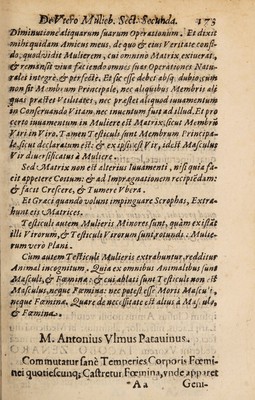 De Vtero Mulieb. Sect. Secunda. 173
Diminutione aliquarum suarum Operationum. Et dixit
mihi quidam Amicus meus, de quo & eius Veritate confi-
do, quod vidit Mulierem, cui omnino Matrix extuerat,
& remansit viua faciendo omnes suas Operationes Natu-
rales integrè, & perfectè. Et sic esse debet absq. dubio, cum
non sit Membrum Principale, nec aliquibus Membris ali
quas præstet Vtilitates, nec præstet aliquod iuuamentum
in Conseruando Vitam, nec inuentum fuit ad illud. Et pro
certo iuuamentum in Muliere est Matrix, sicut Membrū
Viri in Viro. Tamen Testiculi sunt Membrum Principa-
le, sicut declaratum est: & ex ipsis est Vir, idest Masculus
Vir diuersificatus à Muliere.
Sed Matrix non est alterius Iuuamenti, nisi quia fa-
cit appetere Coitum: & ad Impregnationem recipiēdam:
& facit Crescere, & Tumere Vbera.
Et Græci quando volunt impinguare Scrophas, Extra-
hunt eis Matrices.
Testiculi autem Mulieris Minores sunt, quàm existāt
illi Virorum, & Testiculi Virorum sunt rotundi: Mulie-
rum verò Plani.
Cum autem Testiculi Mulieris extrahuntur, redditur
Animal incognitum, Quia ex omnibus Animalibus sunt
Masculi, & Fœmina: & cui ablati sunt Testiculi non est
Masculus, neque Fœmina: nec potest esse Moris Mascu',
neque Fœmina, Quare de necessitate est alius à Masculo,
& Fœmina.
M. Antonius Vlmus Patauinus.
Commutatur sanè Temperies Corporis Fœmi-
nei quotiescunq; Castretur Fœmina, vnde apparet
*Aa Geni-